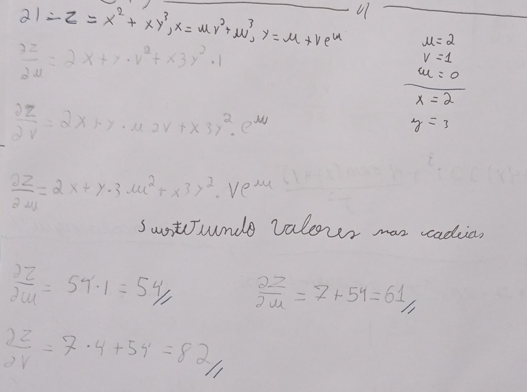 21 - Z = x² + xy³, x = uv² + w³, y = u + ve^w
∂Z/∂u = 2x + y · v² + x3y² · 1
∂Z/∂v = 2x + y · u 2v + x3y² · e^w
∂Z/∂w = 2x + y · 3 w² + x3y² · ve^w
u = 2
v = 1
w = 0
x = 2
y = 3
valores nas cadeias
∂Z/∂w = 54 · 1 = 54 //
∂Z/∂u = 7 + 54 = 61 //
∂Z/∂v = 7 · 4 + 54 = 82 //